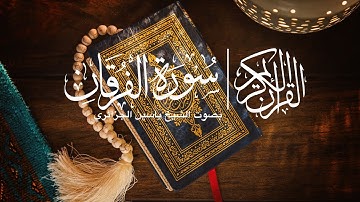 القرآن الكريم
سورة الفرقان
بصوت الشيخ ياسين الجزائري